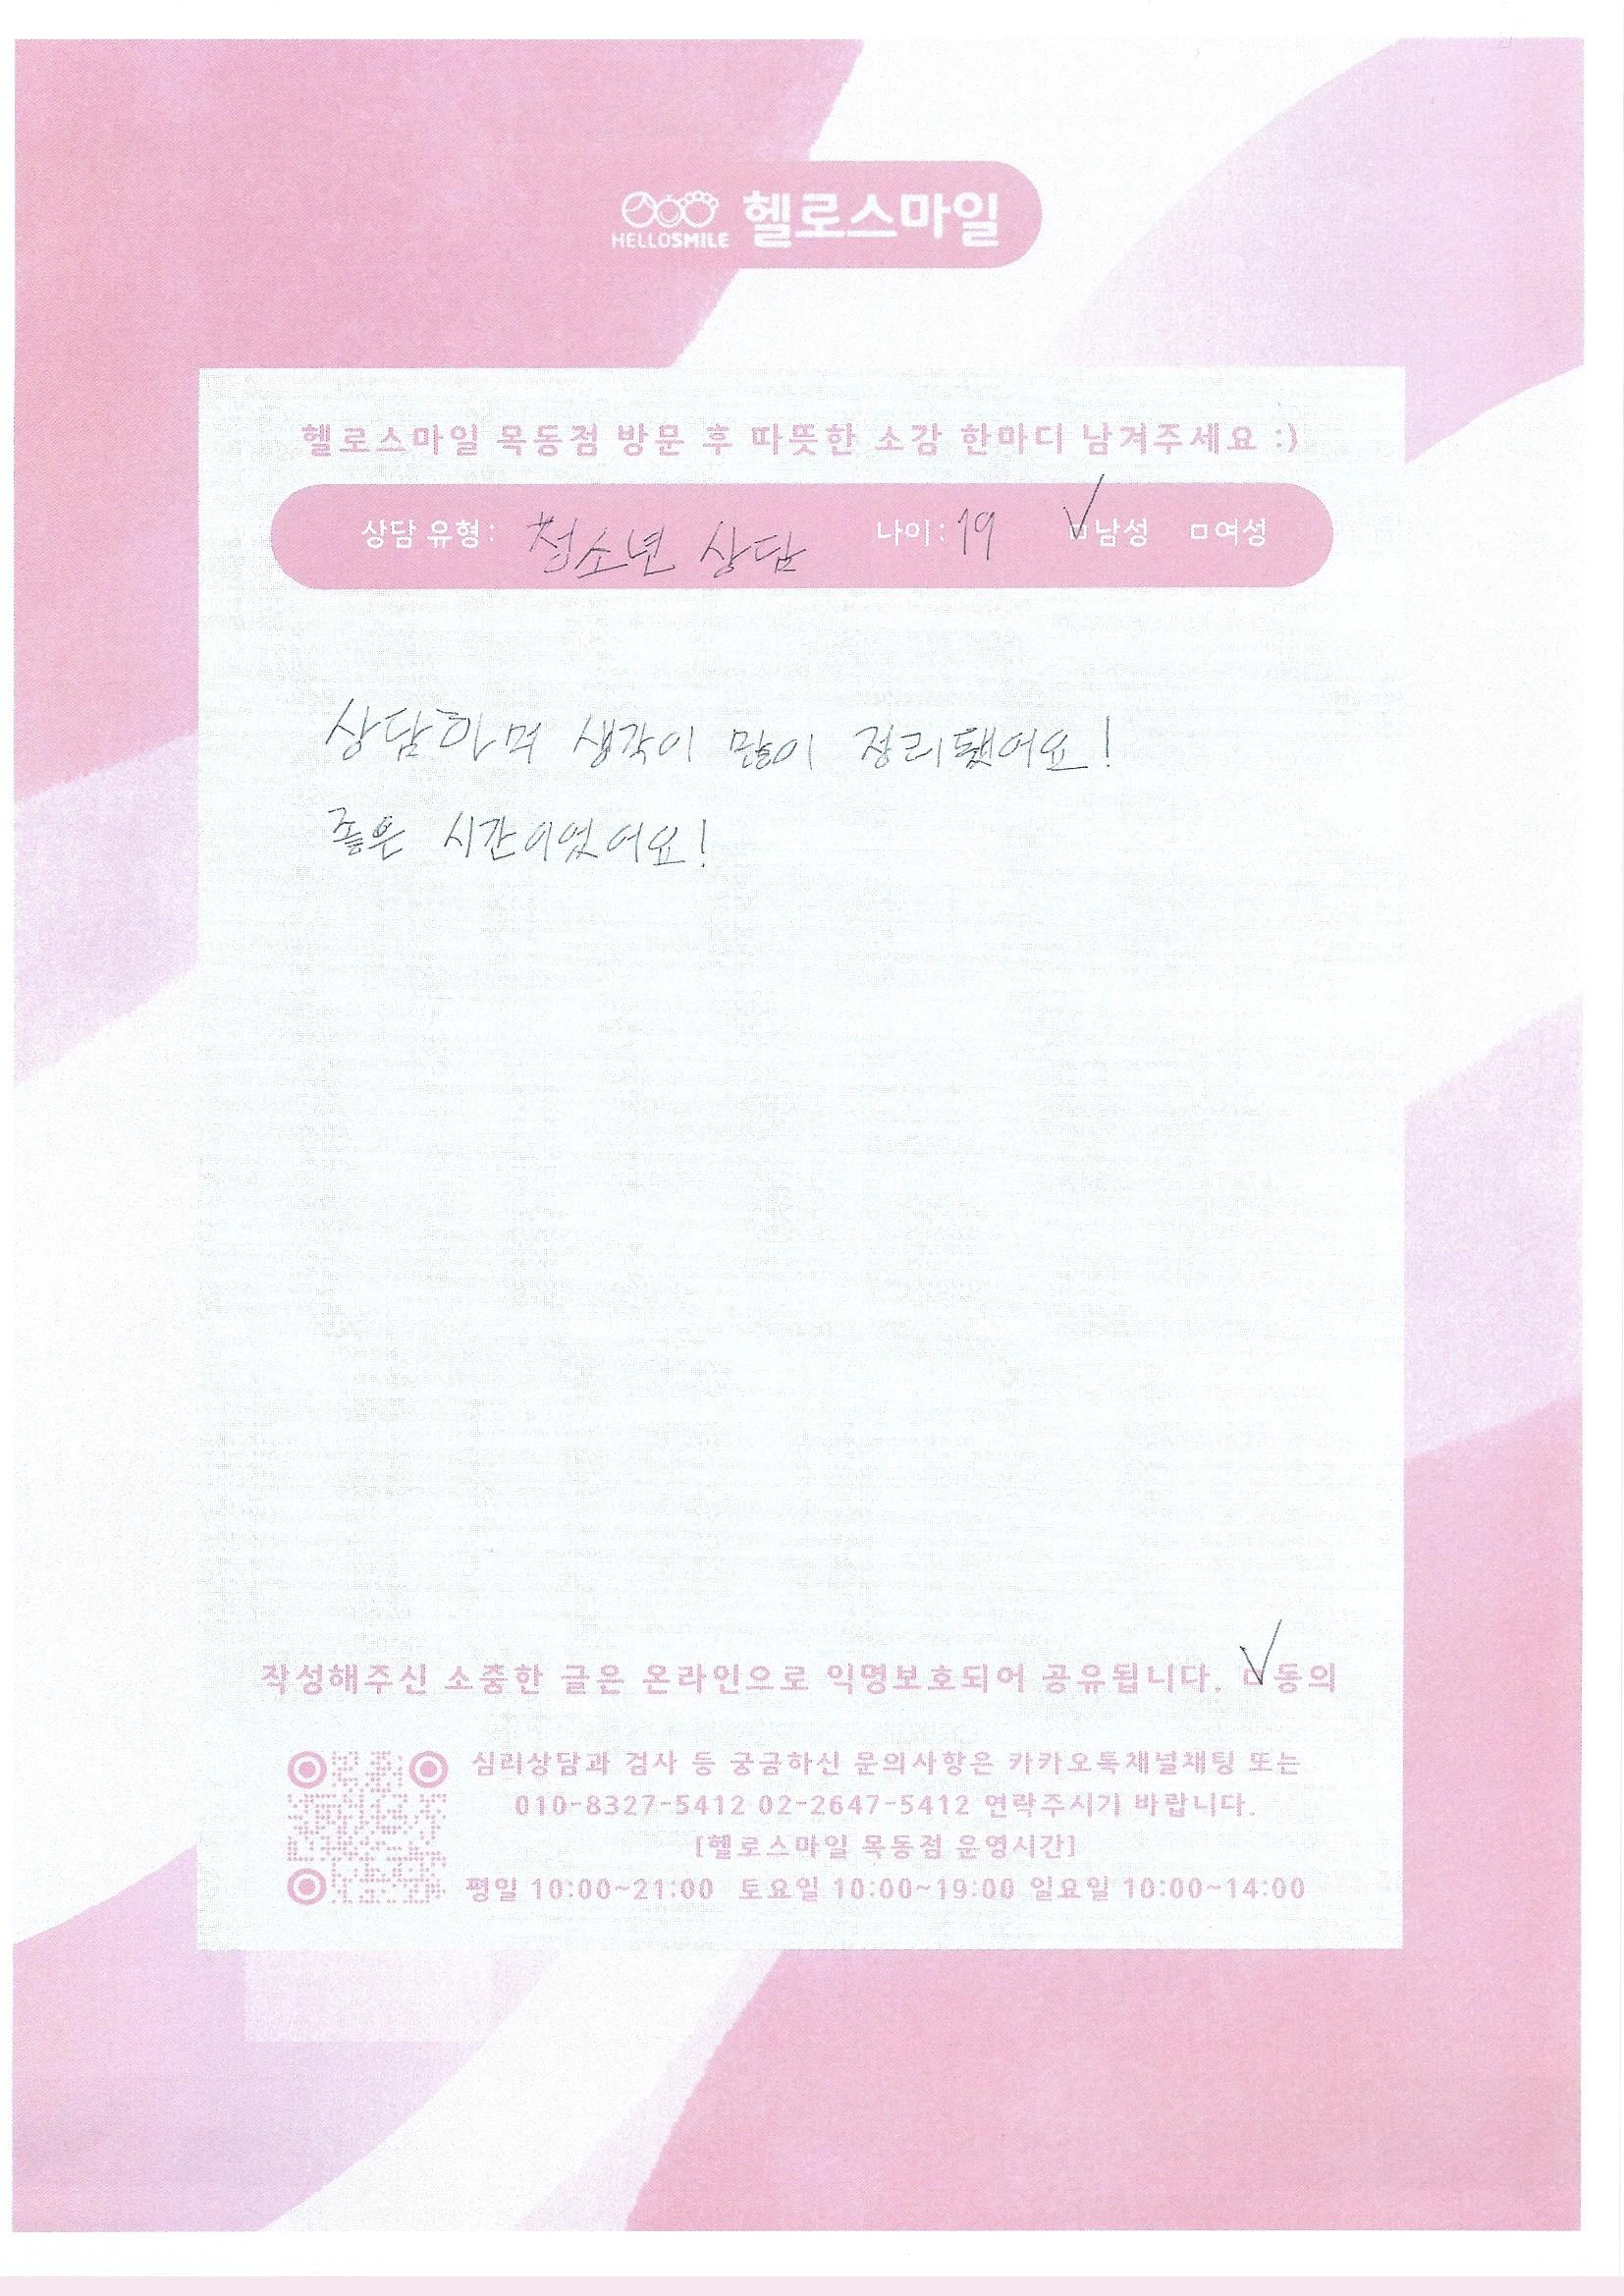 HELLOSMILE 헬로스마일
헬로스마일 목동점 방문 후 따뜻한 소감 한마디 남겨주세요 :)
상담 유형 : 청소년 상담 나이 : 19 ☑남성 □여성
상담하며 생각이 많이 정리됐어요!
좋은 시간이었어요!
작성해주신 소중한 글은 온라인으로 익명보호되어 공유됩니다. ☑동의
심리상담과 검사 등 궁금하신 문의사항은 카카오톡채널채팅 또는
010-8327-5412 02-2647-5412 연락주시기 바랍니다.
[헬로스마일 목동점 운영시간]
평일 10:00~21:00 토요일 10:00~19:00 일요일 10:00~14:00